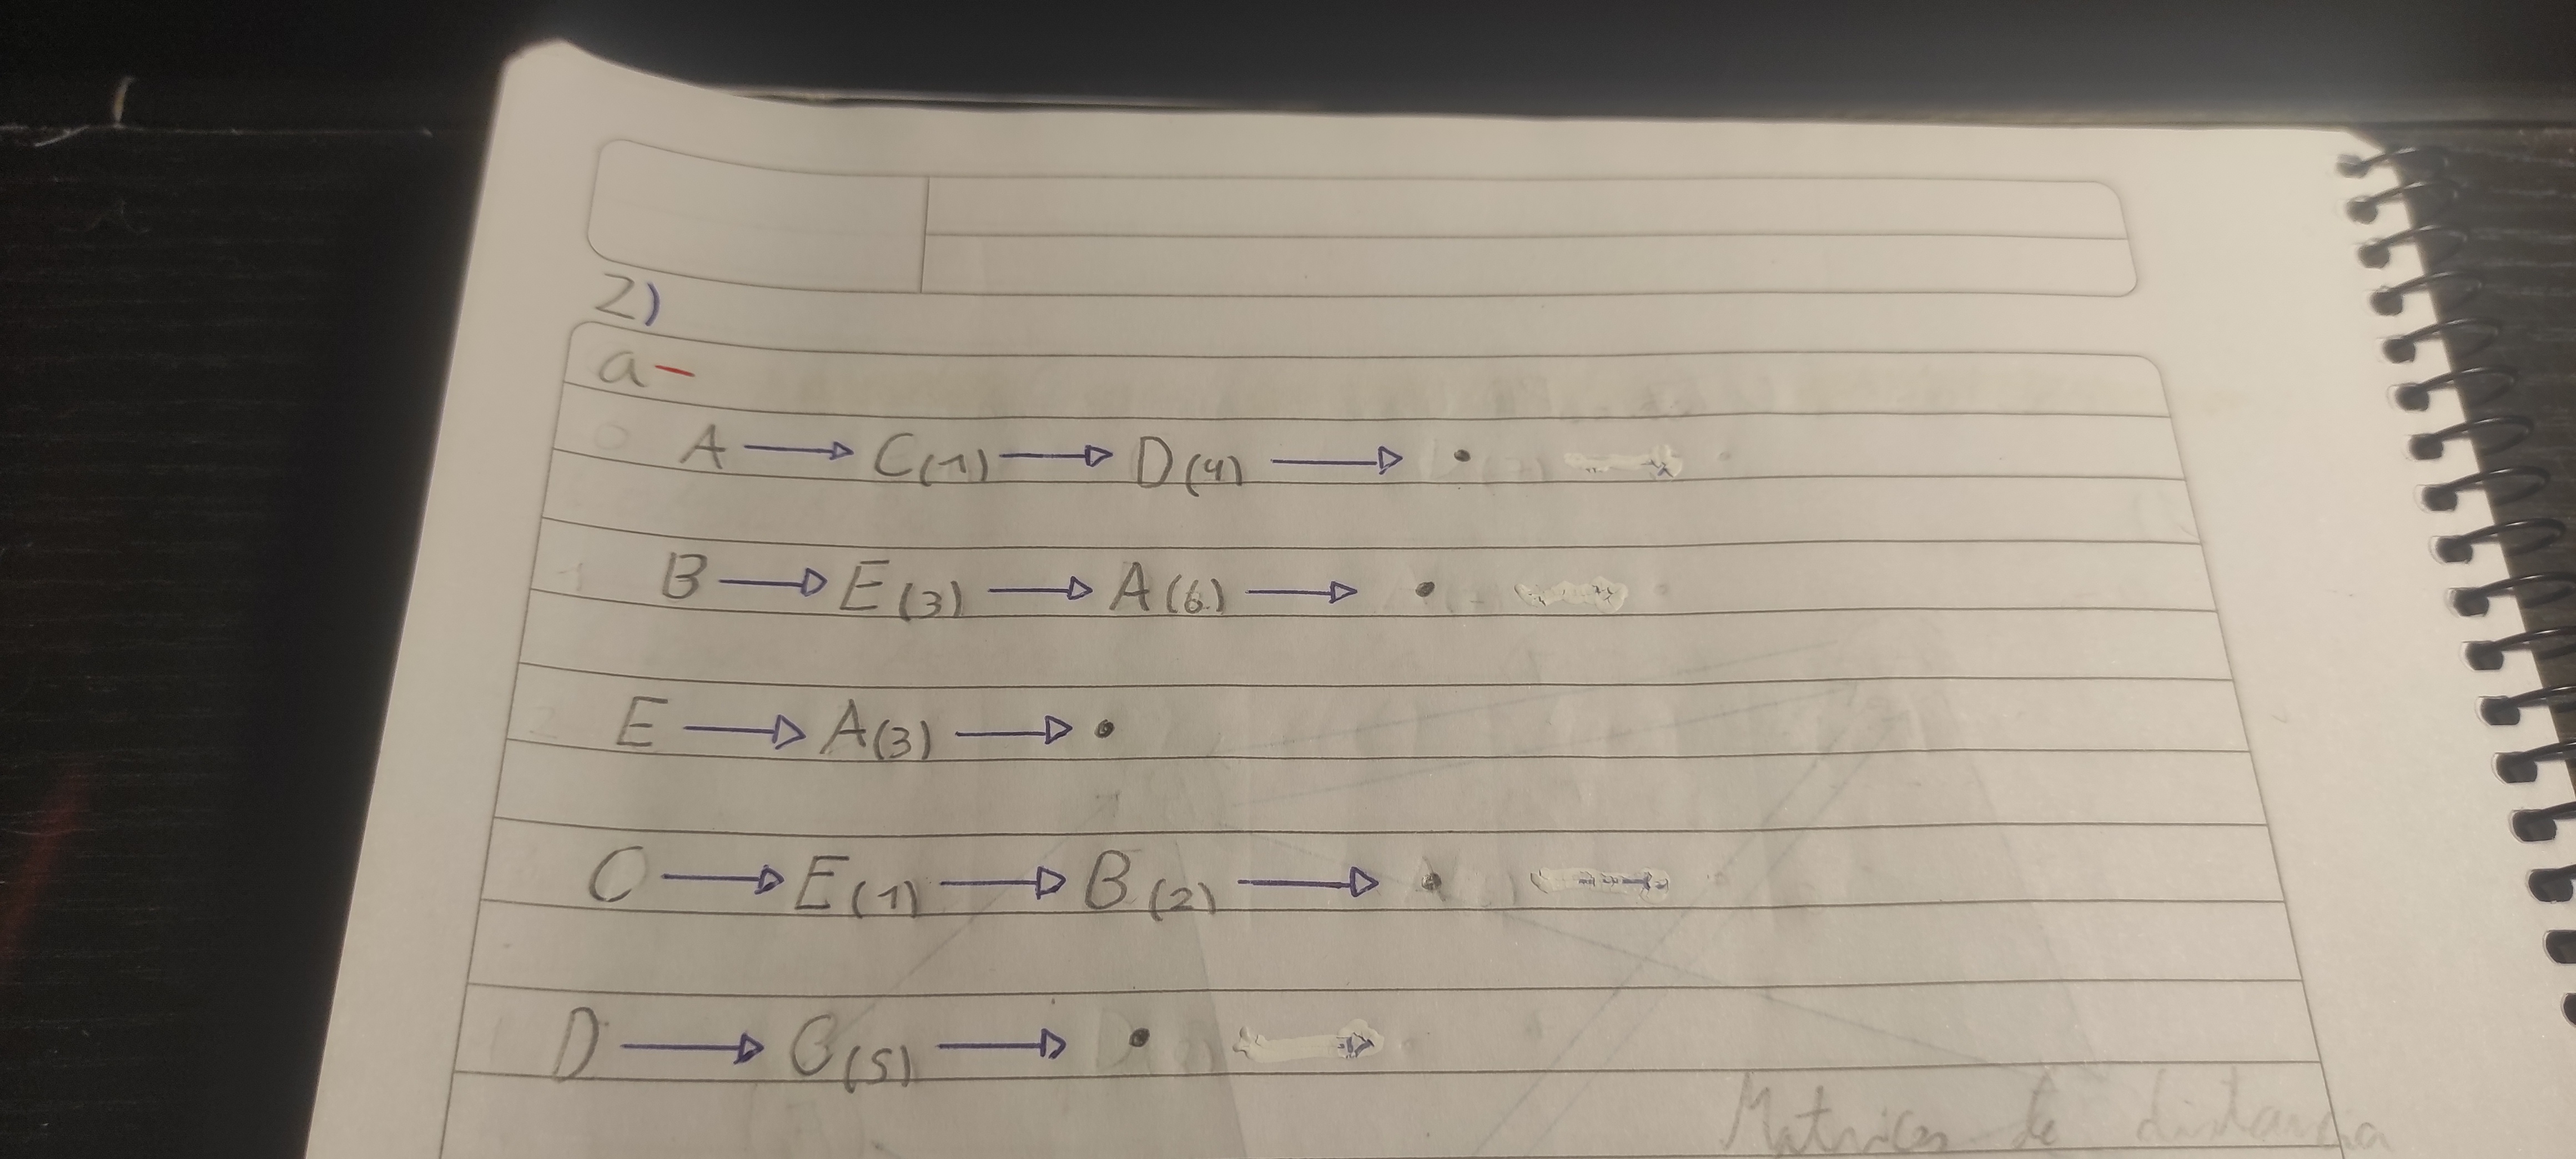 2)
a-
A → C(1) → D(4) → •
B → E(3) → A(6) → •
E → A(3) → •
C → E(1) → B(2) → •
D → (5) → •
Matrices de distancia